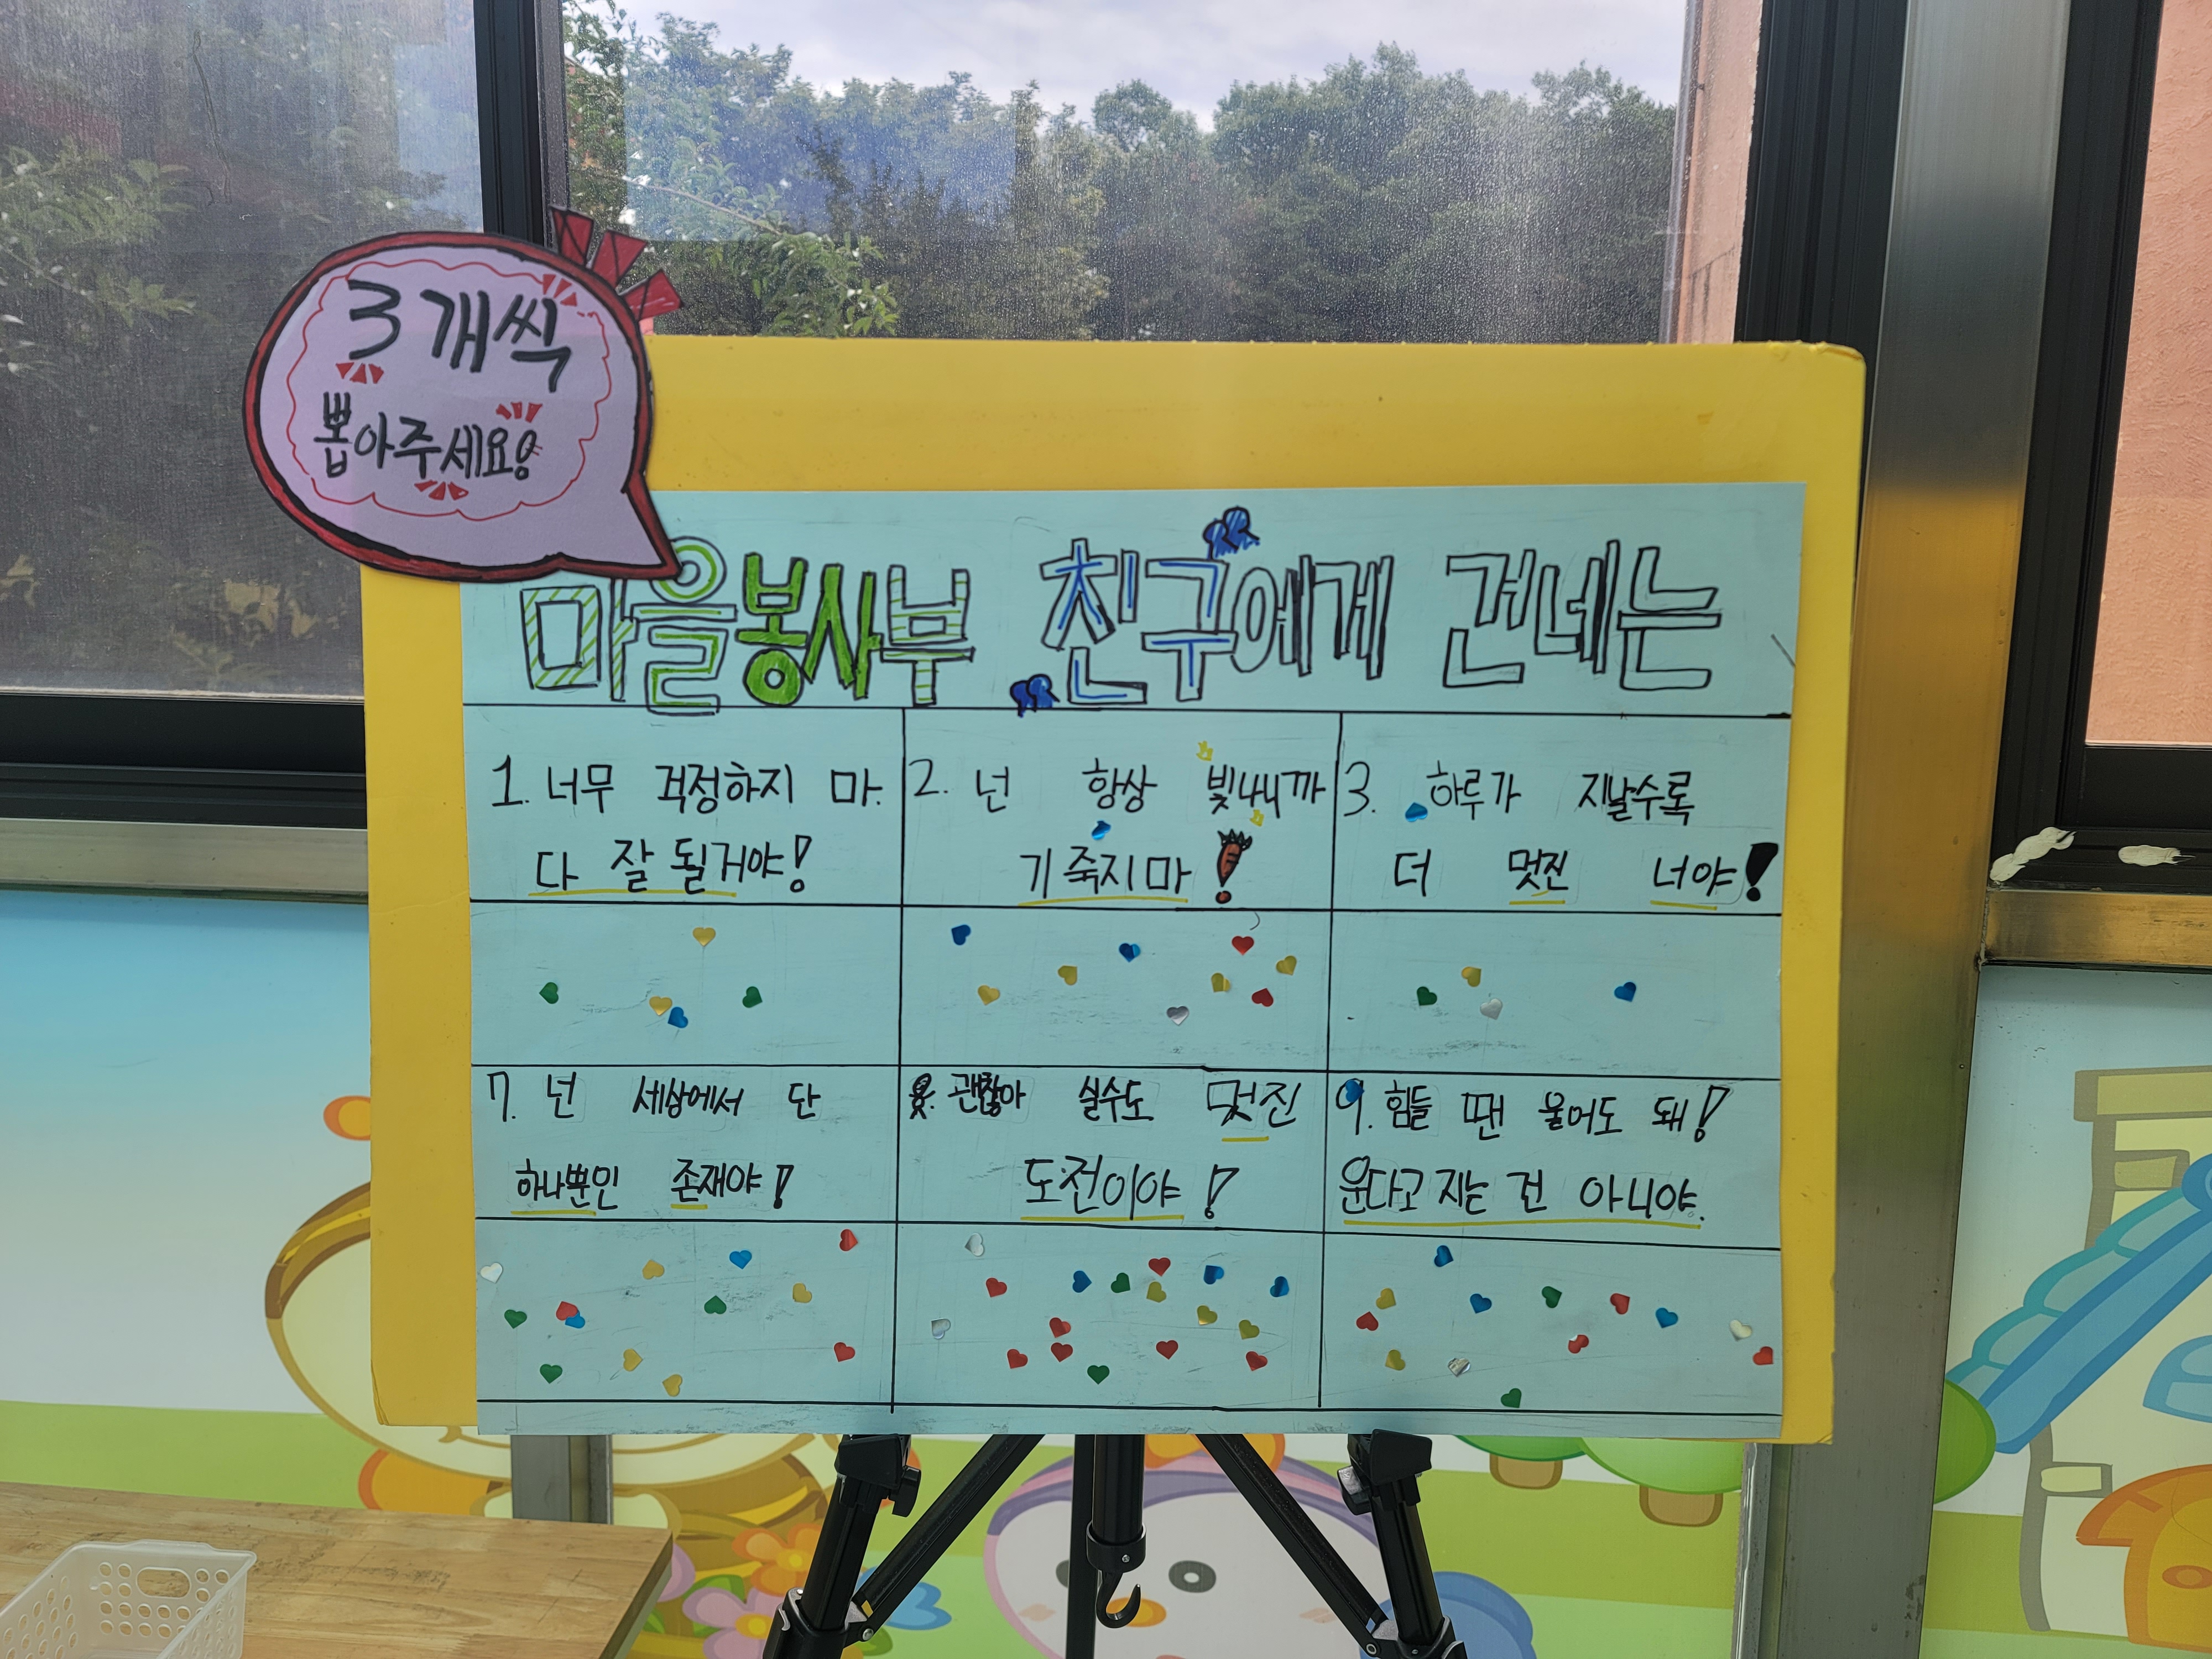 3개씩
뽑아주세요!
마을봉사부 친구에게 건네는
1. 너무 걱정하지 마.
다 잘 될거야!
2. 넌 항상 빛나니까
기죽지마!
3. 하루가 지날수록
더 멋진 너야!
7. 넌 세상에서 단
하나뿐인 존재야!
8. 괜찮아 실수도 멋진
도전이야!
9. 힘들 땐 울어도 돼!
운다고 지는 건 아니야.